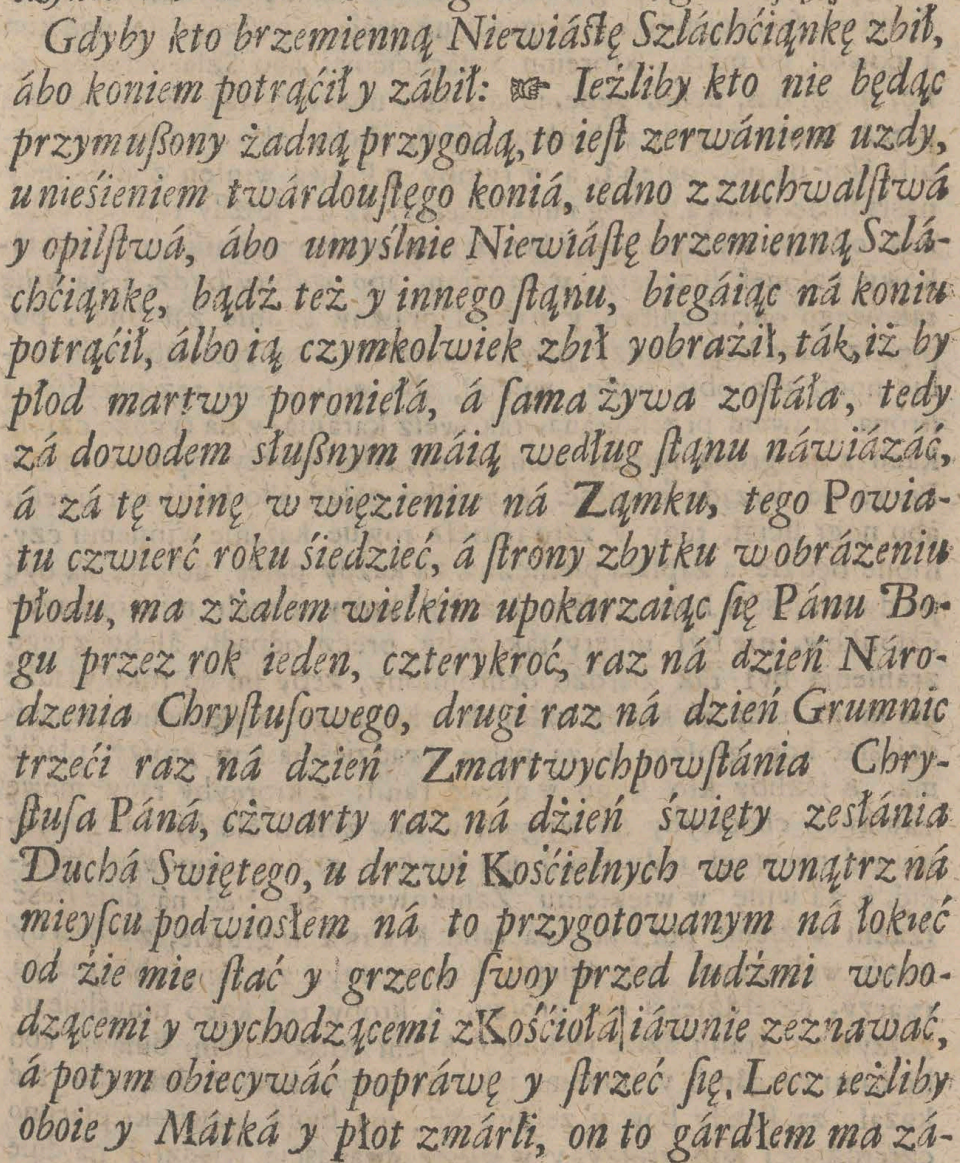 Gdyby kto brzemienną Niewiáſtę Szláchćiąnkę zbił,
ábo koniem potrąćił y zábił: ☞ Ieżliby kto nie będąc
przymuſzony żadną przygodą, to ieſt zerwániem uzdy,
unieśieniem twárdouſtęgo koniá, iedno z zuchwalſtwá
y opilſtwá, ábo umyślnie Niewiáſtę brzemienną Szlá-
chćiąnkę, bądż też y innego ſtąnu, biegáiąc ná koniu
potrąćił, álbo ią czymkolwiek zbił yobraźił, ták, iż by
płod martwy poroniełá, á ſama żywa zoſtáła, tedy
zá dowodem słuſznym máią według ſtąnu náwiázáć,
á zá tę winę w więzieniu ná Ząmku, tego Powia-
tu czwierć roku śiedzieć, á ſtrony zbytku w obrázeniu
płodu, ma z żalem wielkim upokarzaiąc ſię Pánu Bo-
gu przez rok ieden, czterykroć, raz ná dzień Náro-
dzenia Chryſtuſowego, drugi raz ná dzień Grumnic
trzeći raz ná dzień Zmartwychpowſtánia Chry-
ſtuſa Páná, cżwarty raz ná dżień święty zesłánia
Duchá Swiętego, u drzwi Kośćielnych we wnątrz ná
mieyſcu podwiosłem ná to przygotowanym ná łokieć
od źie mie ſtać y grzech ſwoy przed ludźmi wcho-
dzącemi y wychodzącemi z Kośćiołá iáwnie zeznawać,
á potym obiecywáć popráwę y ſtrzeć ſię. Lecz ieżliby
oboie y Mátká y płot zmárli, on to gárdłem ma zá-